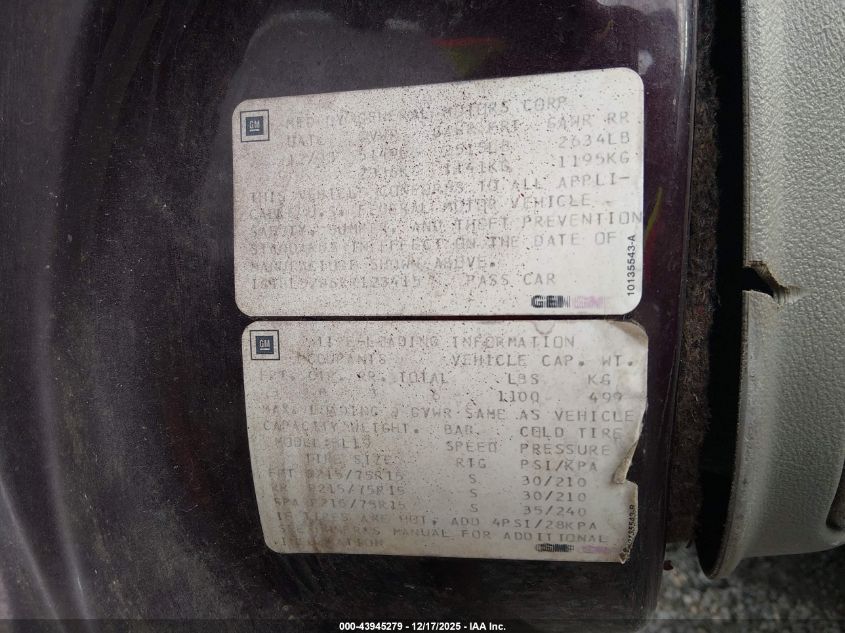 GM
GENERAL MOTORS CORP
DATE GVWR GAWR FRT GAWR RR
2515LB 2634LB
1141KG 1195KG
THIS VEHICLE CONFORMS TO ALL APPLI-
CABLE U.S. FEDERAL MOTOR VEHICLE
SAFETY, BUMPER, AND THEFT PREVENTION
STANDARDS IN EFFECT ON THE DATE OF
MANUFACTURE SHOWN ABOVE.
PASS CAR
10135543-A
GM
TIRE-LOADING INFORMATION
OCCUPANTS VEHICLE CAP. WT.
CTR. RR. TOTAL LBS KG
1100 499
MAX. LOADING & GVWR SAME AS VEHICLE
CAPACITY WEIGHT. BAR. COLD TIRE
SPEED PRESSURE
TIRE SIZE RTG PSI/KPA
FRT P215/75R15 S 30/210
RR P215/75R15 S 30/210
SPA P215/75R15 S 35/240
IF TIRES ARE HOT, ADD 4PSI/28KPA
SEE OWNERS MANUAL FOR ADDITIONAL
INFORMATION
000-43945279 – 12/17/2025 – IAA Inc.